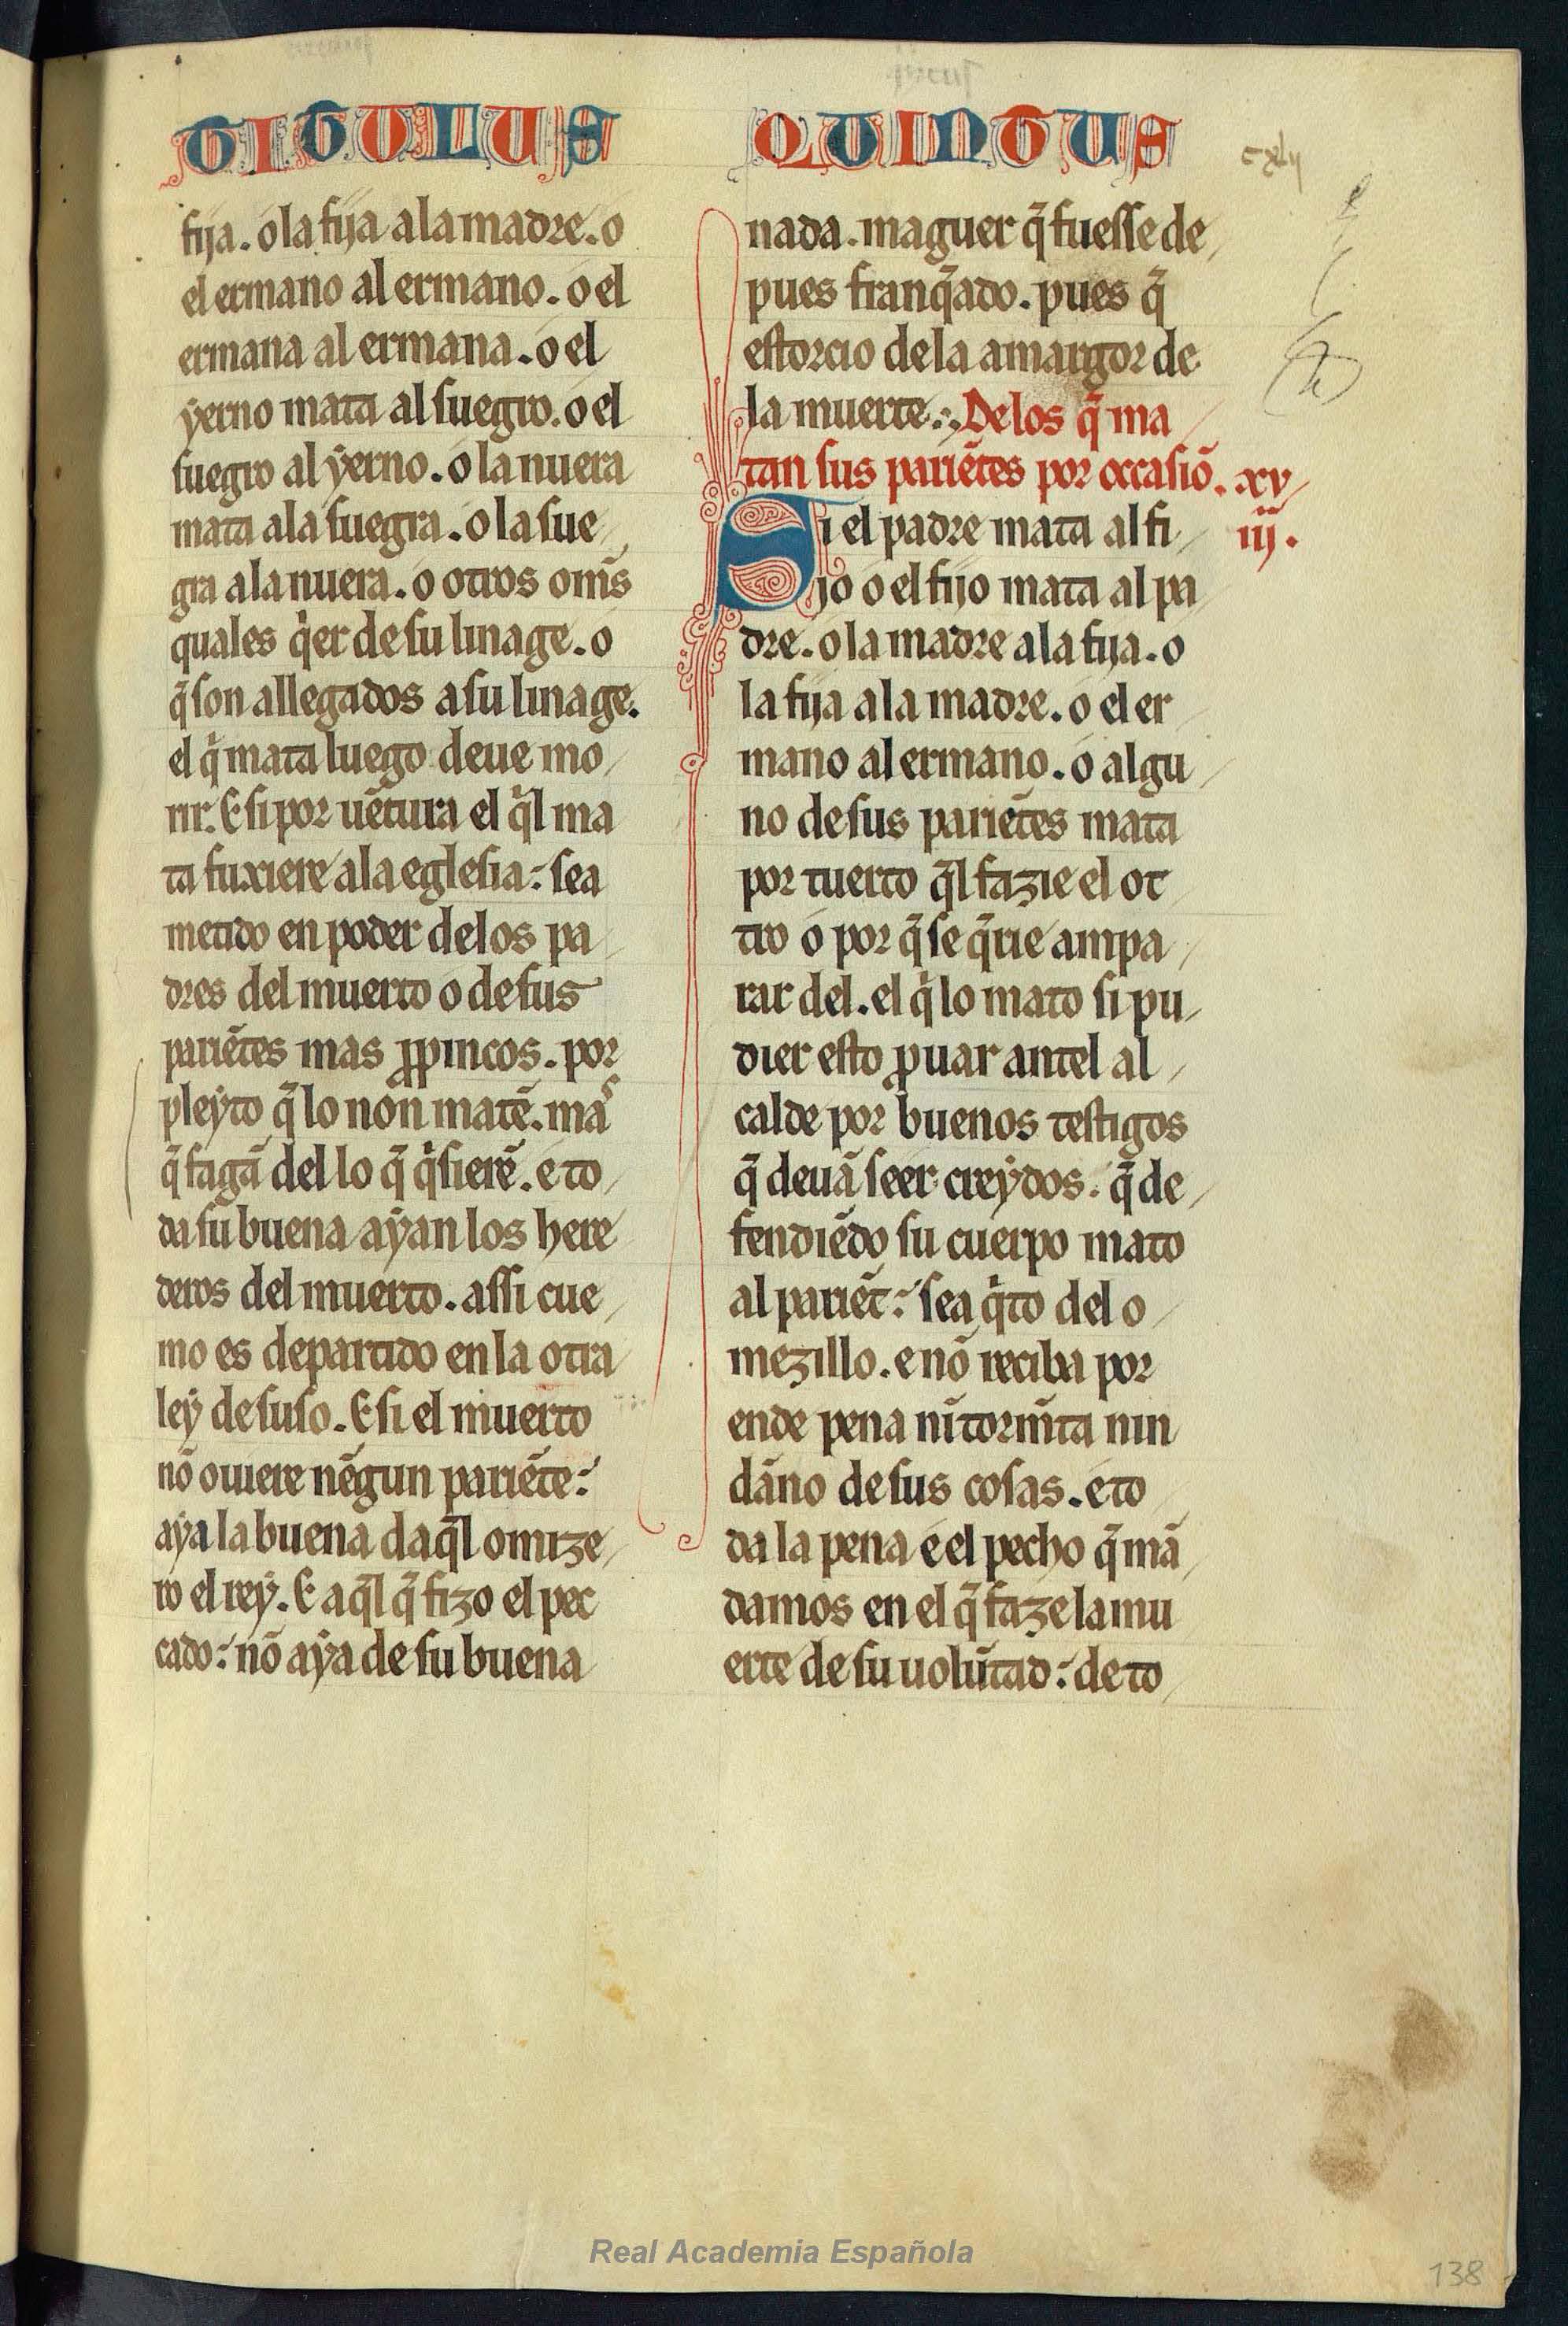 TITULUS QUINTUS
cxlij
fija. o la fija a la madre. o
el ermano al ermano. o el
ermana al ermana. o el
yerno mata al suegro. o el
suegro al yerno. o la nuera
mata ala suegra. o la sue
gra a la nuera. o otros om̃s
quales q̇er de su linage. o
q̃ son allegados a su linage.
el q̇ mata luego deue mo
rir. E si por uẽtura el q̇l ma
ta fuxiere a la eglesia: sea
metido en poder delos pa
dres del muerto o de sus
pariẽtes mas ꝓpincos. por
pleyto q̃ lo non matẽ. mas
q̃ fagã del lo q̃ q̇sierẽ. e to
da su buena ayan los here
deros del muerto. assi cue
mo es departido en la otra
ley de suso. E si el muerto
nõ ouiere nẽgun pariẽte:
aya la buena daq̃l omize
ro el rey. E aq̃l q̃ fizo el pec
cado: nõ aya de su buena
nada. maguer q̃ fuesse de
pues franq̃ado. pues q̃
estorcio de la amargor de
la muerte: Delos q̃ ma
tan sus pariẽtes por occasiõ. xv
iij.
Si el padre mata al fi
jo o el fijo mata al pa
dre. o la madre a la fija. o
la fija a la madre. o el er
mano al ermano. o algu
no de sus pariẽtes mata
por tuerto q̃l fazie el ot
tro o por q̃ se q̃rie ampa
rar del. el q̇ lo mato si pu
dier esto ꝓuar antel al
calde por buenos testigos
q̃ deuã seer creydos. q̃ de
fendiẽdo su cuerpo mato
al pariẽt: sea q̇to del o
mezillo. e nõ reciba por
ende pena nĩ torm̃ta nin
dãno de sus cosas. e to
da la pena e el pecho q̃ mã
damos en el q̃ faze la mu
erte de su uolũtad: de to
Real Academia Española
138